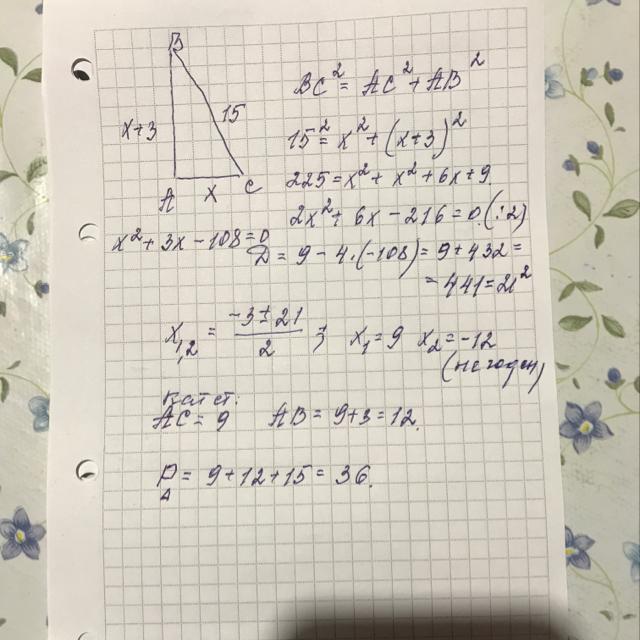 B
x+3
15
A
x
C
BC² = AC² + AB²
15² = x² + (x+3)²
225 = x² + x² + 6x + 9
2x² + 6x - 216 = 0 (:2)
x² + 3x - 108 = 0
D = 9 - 4·(-108) = 9 + 432 =
= 441 = 21²
x₁,₂ = (-3 ± 21)/2 ; x₁ = 9 x₂ = -12
(не годен)
AC = 9 AB = 9+3 = 12.
P△ = 9 + 12 + 15 = 36.